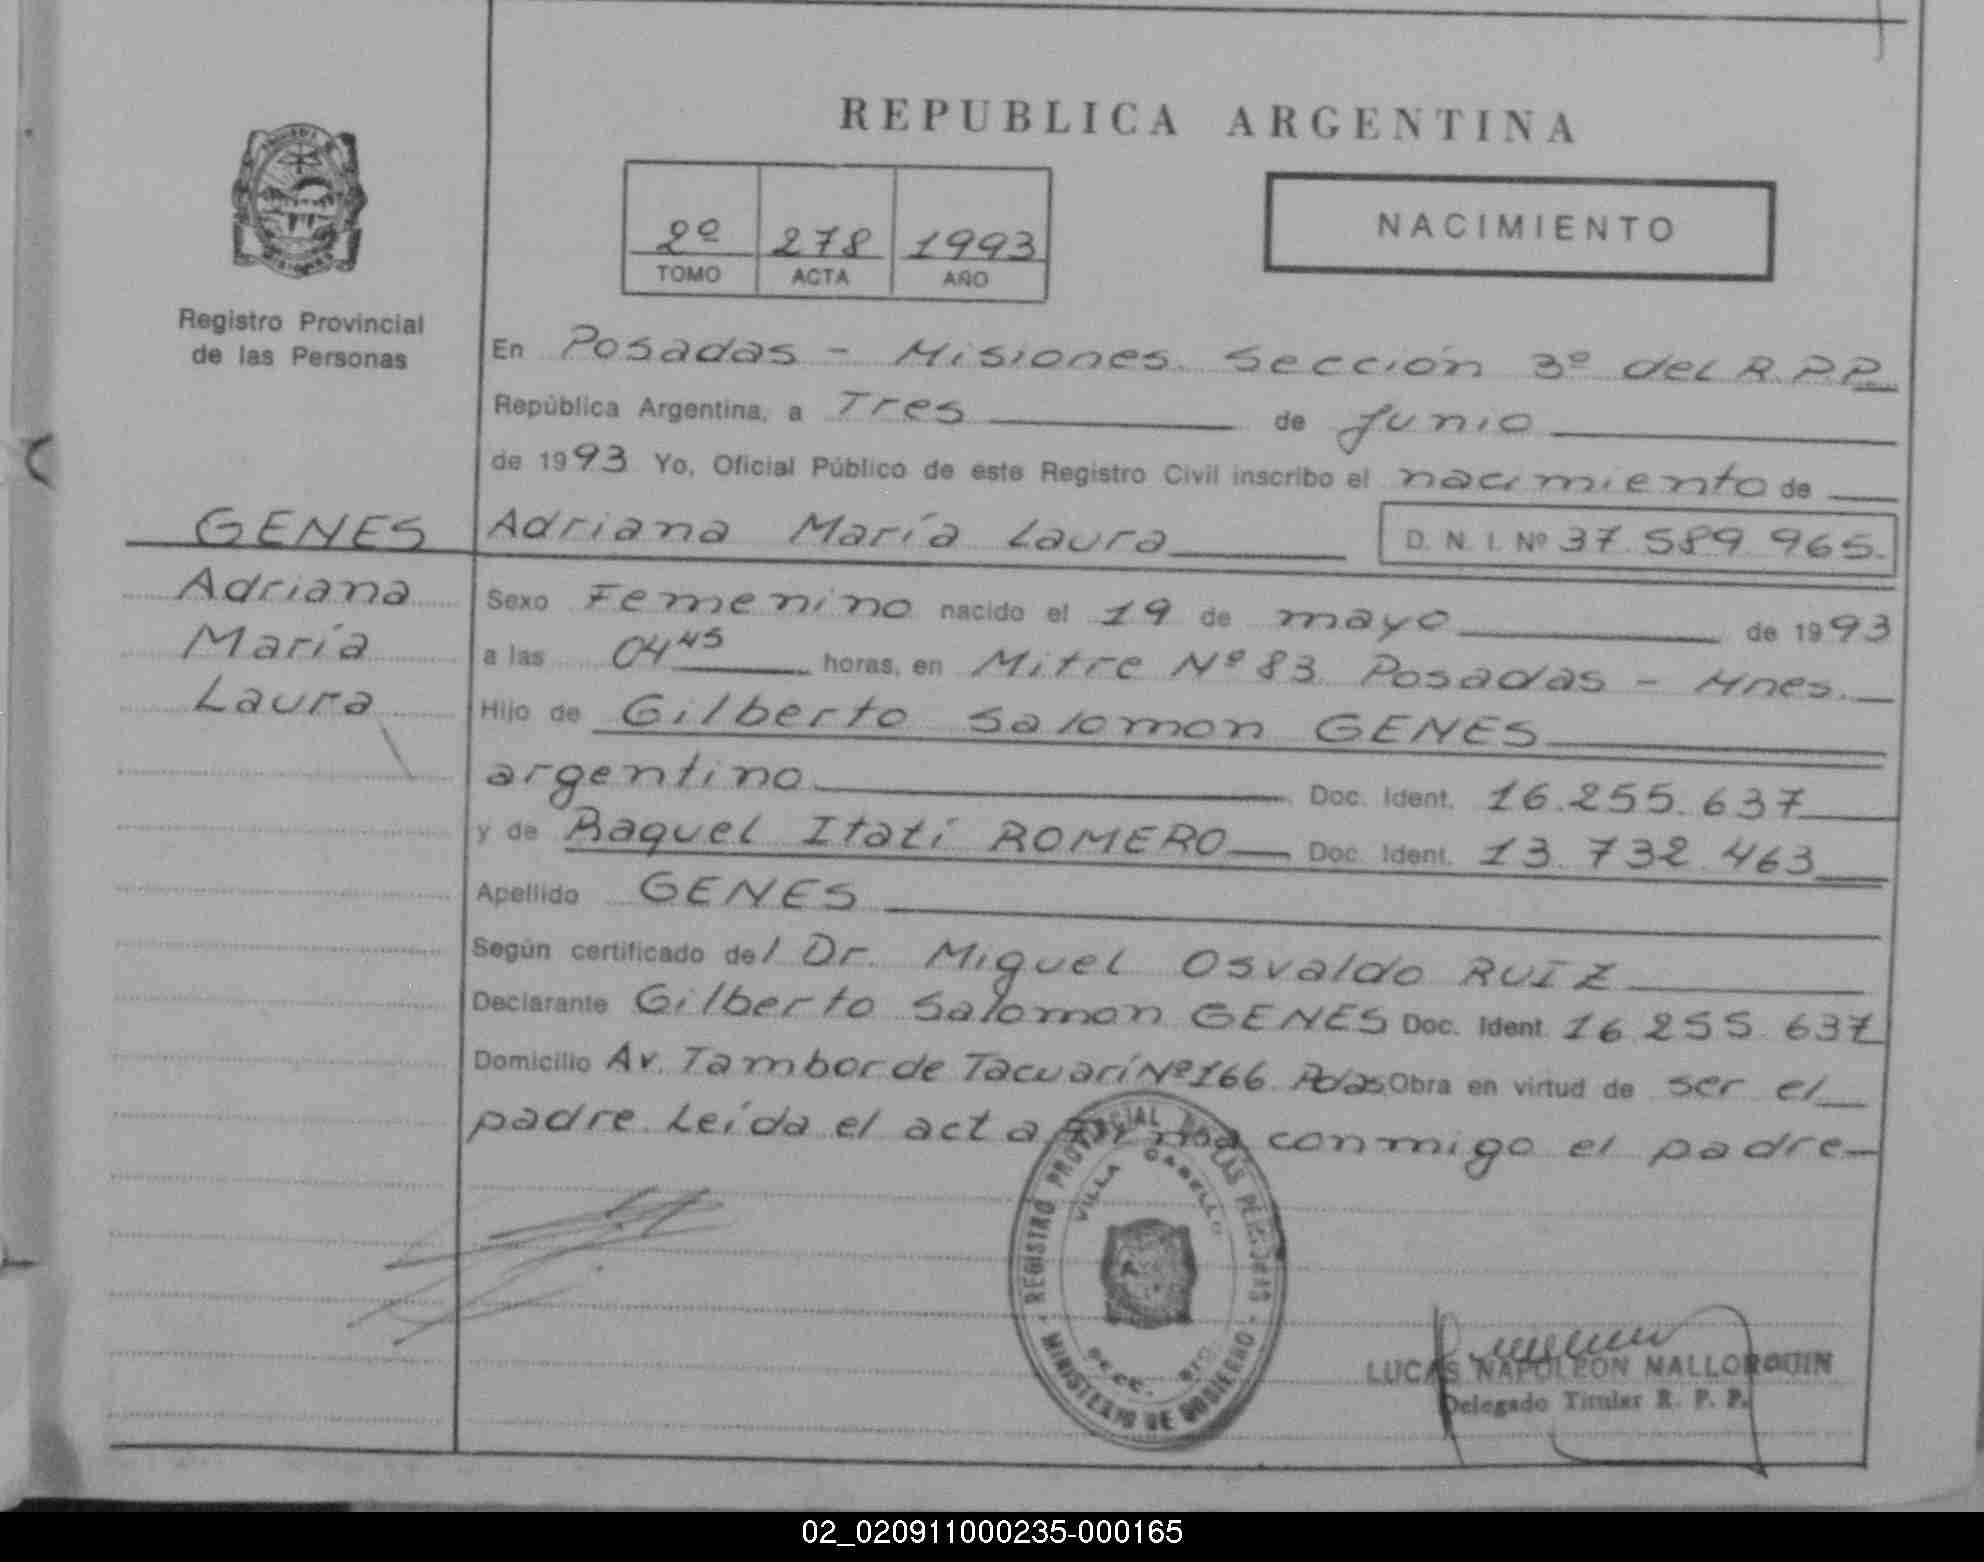 REPUBLICA ARGENTINA
2º 278 1993
TOMO ACTA AÑO
NACIMIENTO
Registro Provincial
de las Personas
En Posadas - Misiones. Sección 3º del R.P.P.
República Argentina, a Tres de Junio
de 1993 Yo, Oficial Público de este Registro Civil inscribo el nacimiento de
GENES Adriana María Laura D. N. I. Nº 37.589.965.
Adriana
María
Laura
Sexo Femenino nacido el 19 de mayo de 1993
a las 04 45 horas, en Mitre Nº 83. Posadas - Mnes.
Hijo de Gilberto Salomon GENES
argentino Doc. Ident. 16.255.637
y de Raquel Itatí ROMERO Doc. Ident. 13.732.463
Apellido GENES
Según certificado del Dr. Miguel Osvaldo RUIZ
Declarante Gilberto Salomon GENES Doc. Ident. 16.255.637
Domicilio Av. Tambor de Tacuarí Nº 166. Pdas Obra en virtud de ser el
padre. Leída el acta firma conmigo el padre
REGISTRO PROVINCIAL DE LAS PERSONAS
VILLA CABELLO
SECC. 3ra.
MINISTERIO DE GOBIERNO
LUCAS NAPOLEON MALLORQUIN
Delegado Titular R. P. P.
02_020911000235-000165